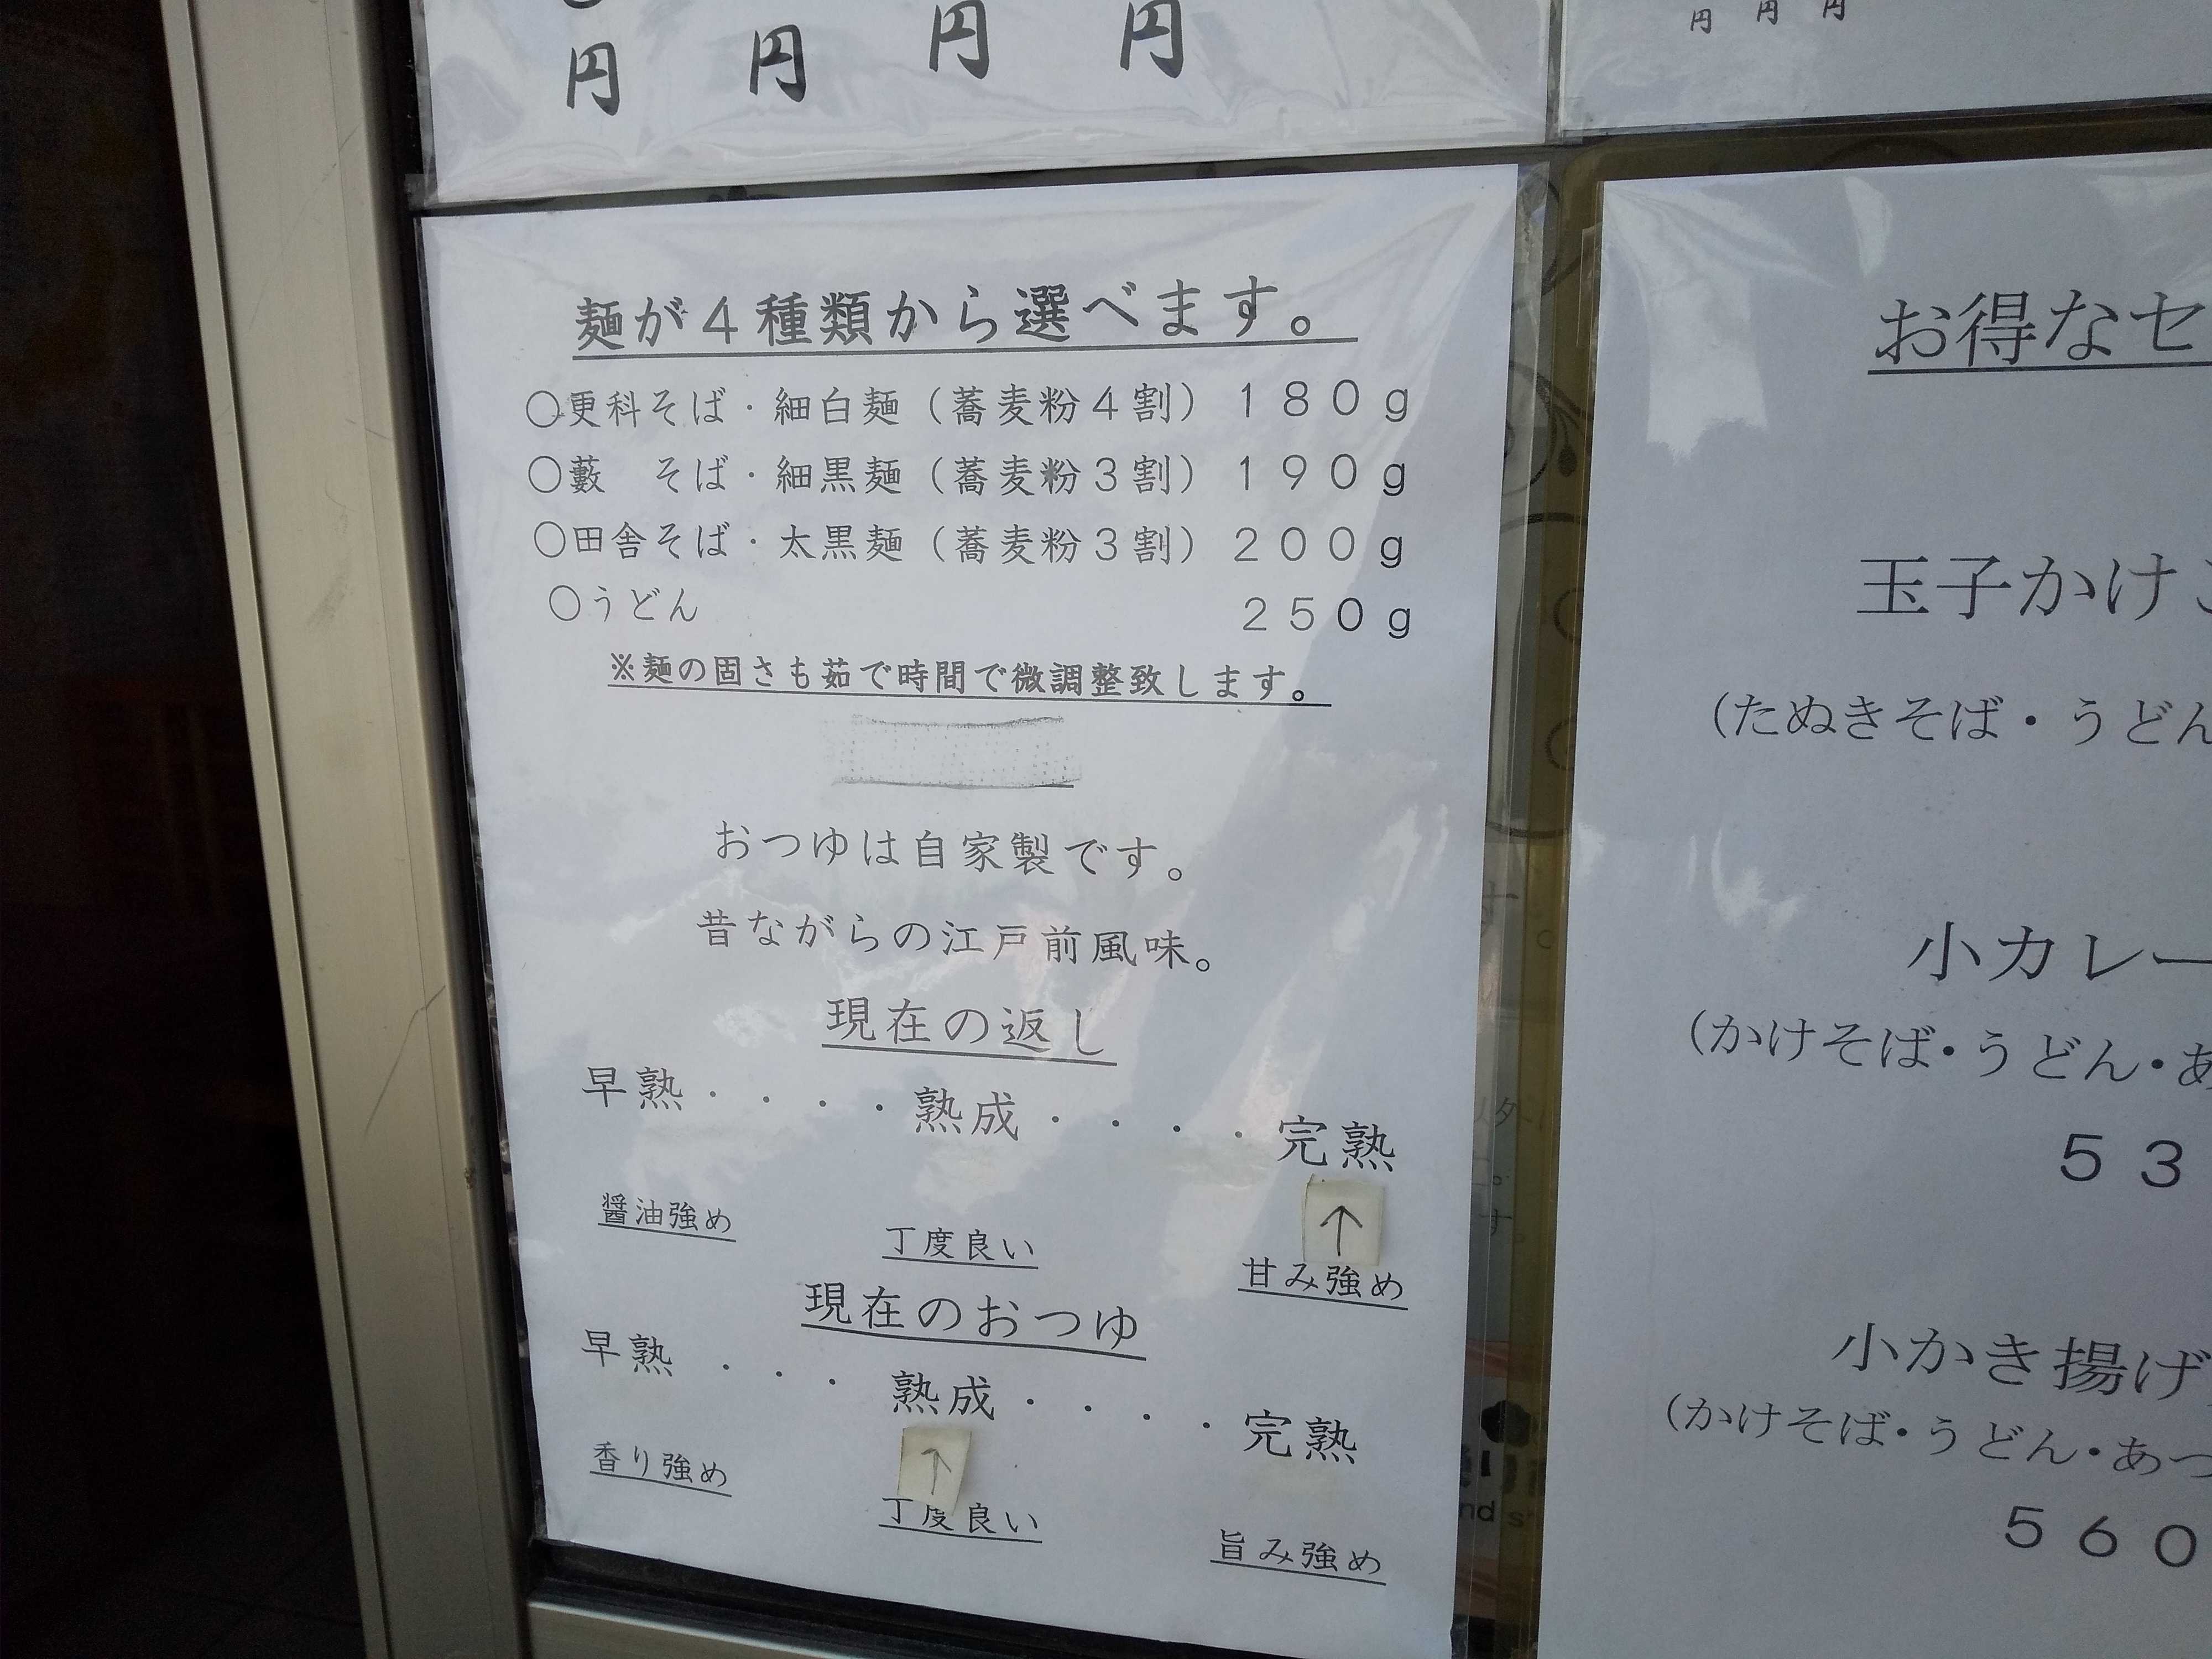 円 円 円 円
円 円 円
麺が４種類から選べます。
○更科そば・細白麺（蕎麦粉４割）１８０ｇ
○藪　そば・細黒麺（蕎麦粉３割）１９０ｇ
○田舎そば・太黒麺（蕎麦粉３割）２００ｇ
○うどん　２５０ｇ
※麺の固さも茹で時間で微調整致します。
おつゆは自家製です。
昔ながらの江戸前風味。
現在の返し
早熟・・・・熟成・・・・完熟
↑
醤油強め　丁度良い　甘み強め
現在のおつゆ
早熟・・・熟成・・・・完熟
↑
香り強め　丁度良い　旨み強め
お得なセ
玉子かけ
（たぬきそば・うどん
小カレー
（かけそば・うどん・あ
５３
小かき揚げ
（かけそば・うどん・あつ
５６０